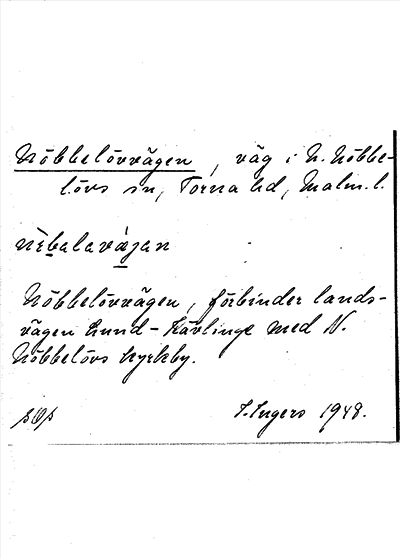 Nöbbelövvägen, väg i N. Nöbbe-
lövs sn, Torna hd, Malm. l.
nèbalavájan
Nöbbelövvägen, förbinder lands-
vägen Lund-Kävlinge med N.
Nöbbelövs kyrkby.
I. Ingers 1948.